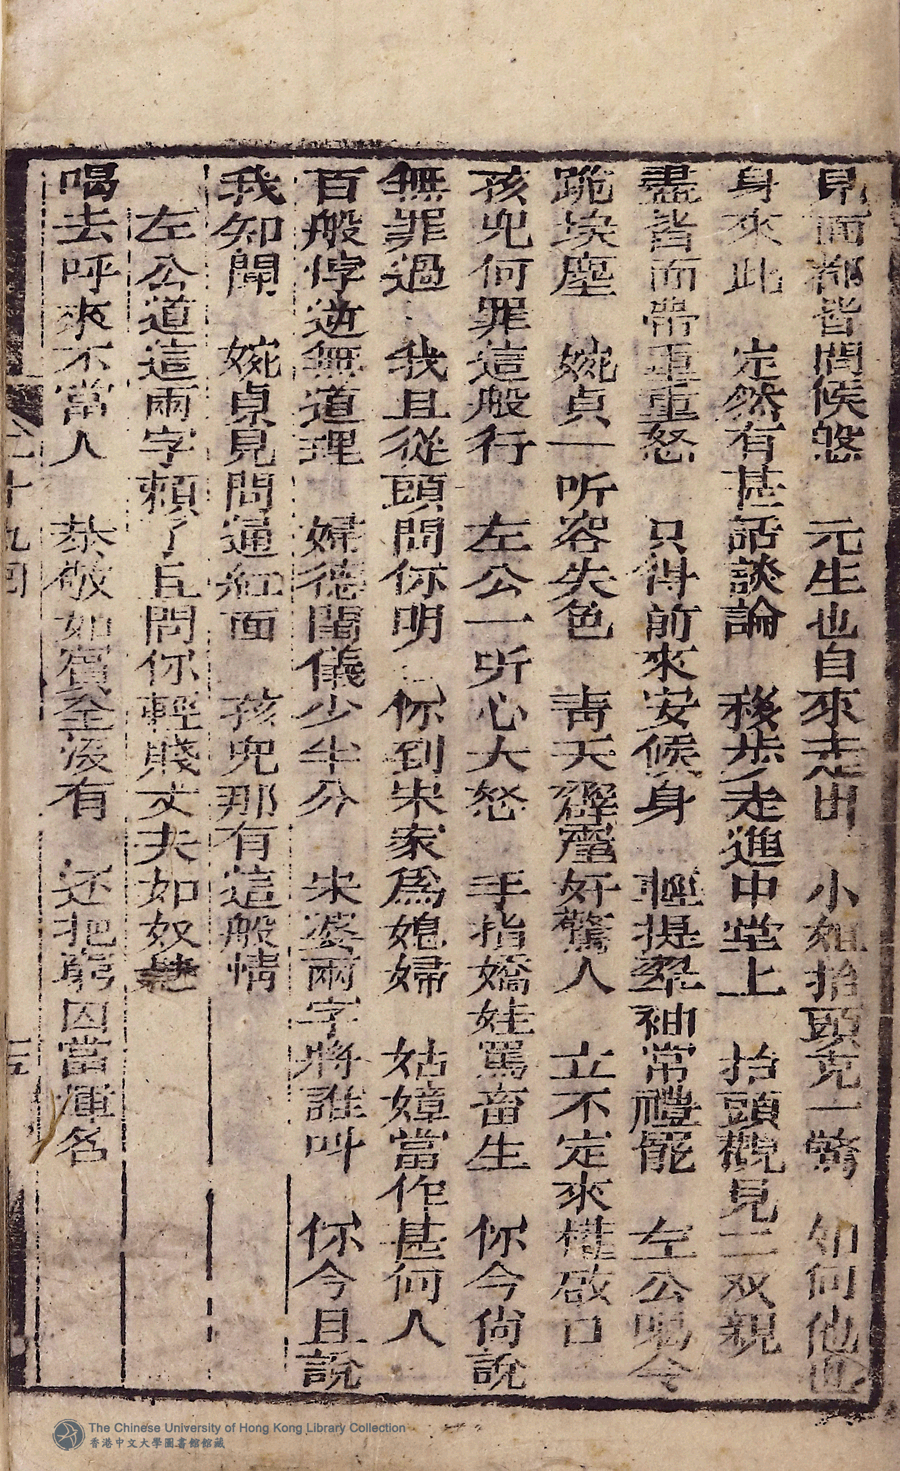 見面都皆問候慇　元生也自來走出　小姐抬頭克一驚　如何他也
身來此　定然有甚話談論　移步走進中堂上　抬頭覌見二双親
盡皆面帶重重怒　只得前來安候身　輕提翠袖常禮罷　左公喝令
跪埃塵　婉貞一听容失色　青天霹靂好驚人　立不定來櫣啟口
孩兒何罪這般行　左公一听心大怒　手指嬌娃罵畜生　你今尙說
無罪過　我且從頭問你明　你到宋家爲媳婦　姑嫜當作甚何人
百般悖逆無道理　婦德閨儀少半分　宋婆兩字將誰叫　你今且說
我知聞　婉貞見問通紅面　孩兒那有這般情
左公道這兩字賴了且問你輕賤丈夫如奴
喝去呼來不當人　恭敬如賓全沒有　还把窮囚當渾名
二十九回
五
The Chinese University of Hong Kong Library Collection
香港中文大學圖書館館藏